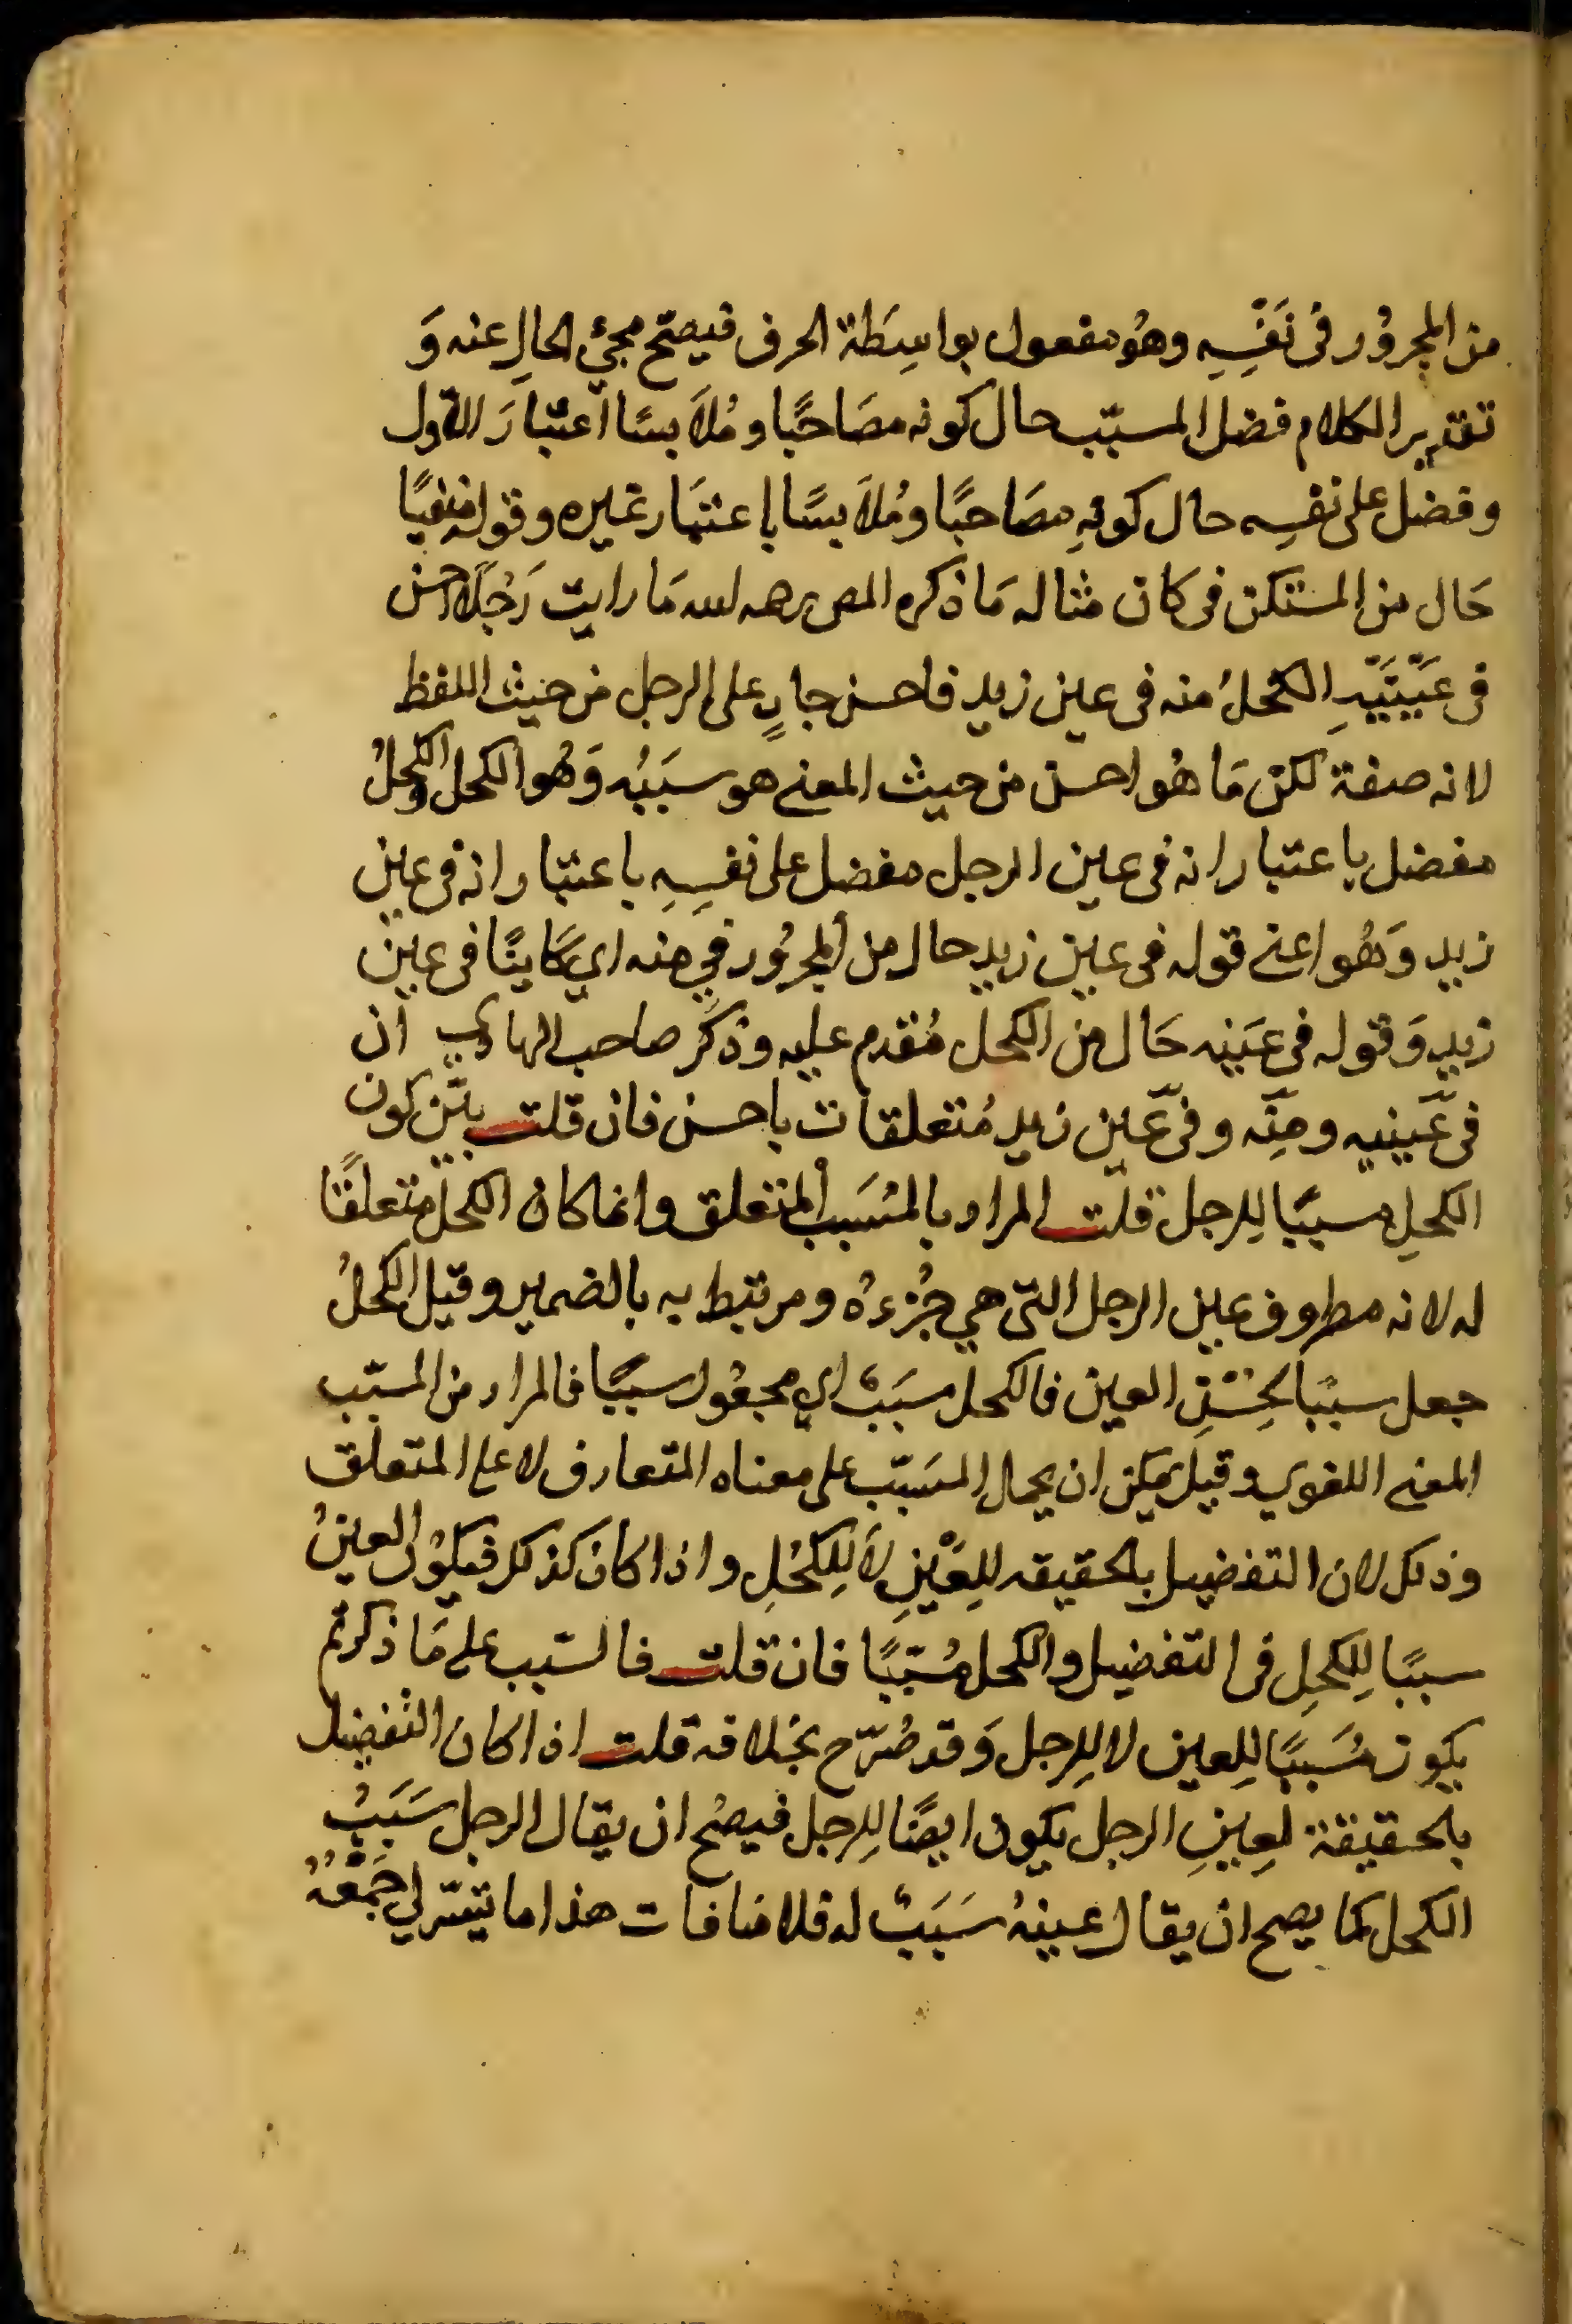 من المجرور فى نَفْسِهِ وهُو مفعول بواسِطَة الحرف فيصحّ مجيُ الحالِ عنه وَ
تقدير الكلام فضل المسبّب حال كونه مصَاحبًا ومُلَابسًا اعتبارَ الاول
وفضل على نفسِه حال كونهِ مصَاحبًا ومُلَابسًا باعتبَار غيره وقوله منفيًا
حَال من المستكن فى كان مثاله مَا ذكره المص رحمه الله مَا رايت رَجُلًا احسن
فى عَيْنَيْهِ الكحلُ منه فى عين زيد فاحسن جارٍ على الرجل من حيث اللفظ
لانه صفة لكن مَا هُو احسن من حيث المعنى هو سبَبُه وَهُو الكحل والكحلُ
مفضل باعتبار انه فى عين الرجل مفضل على نفسِهِ باعتبَار انه فى عين
زيد وَهُو اعنى قوله فى عين زيد حال من المجرُور في منه اي كَاينًا فى عين
زيد وَقوله فى عَينه حَال من الكحل مُقدم عليه وذكَر صاحب الهادي ان
فى عَينيه ومنه وفى عَين زيد مُتعلقات باحسن فان قلت بيّن كون
الكحلِ مسبّبًا لِلرجل قلت المراد بالمُسَبب المتعلق وانما كان الكحل متعلقًا
له لانه مظروف عين الرجل التى هي جُزءهُ ومرتبط به بالضمير وقيل الكحلُ
جعل سببًا لحُسْنِ العين فالكحل مسبَبٌ اي مجعُول سببًا فالمراد من المسبّب
المعنى اللغوي وقيل يمكن ان يحال المسَبّب على معناه المتعارف لا على المتعلق
وذلك لان التفضيل بالحقيقه لِلعَيْنِ لَا لِلكحُلِ واذا كان كذلك فيكوُن العينُ
سببًا لِلكحلِ فى التفضيل والكحل مُسَبّبًا فان قلت فالسّبب على مَا ذكرتم
يكون مُسَببًا لِلعين لا لِلرجل وَقد صُرّح بخلافه قلت اذا كان التفضيل
بالحقيقة لِعينِ الرجل يكون ايضًا لِلرجل فيصُح ان يقال الرجل سَبَبُ
الكحل كما يصح ان يقال عينهُ سَبَبٌ له فلاضافات هذا ما تيسّر لي جَمْعُهُ